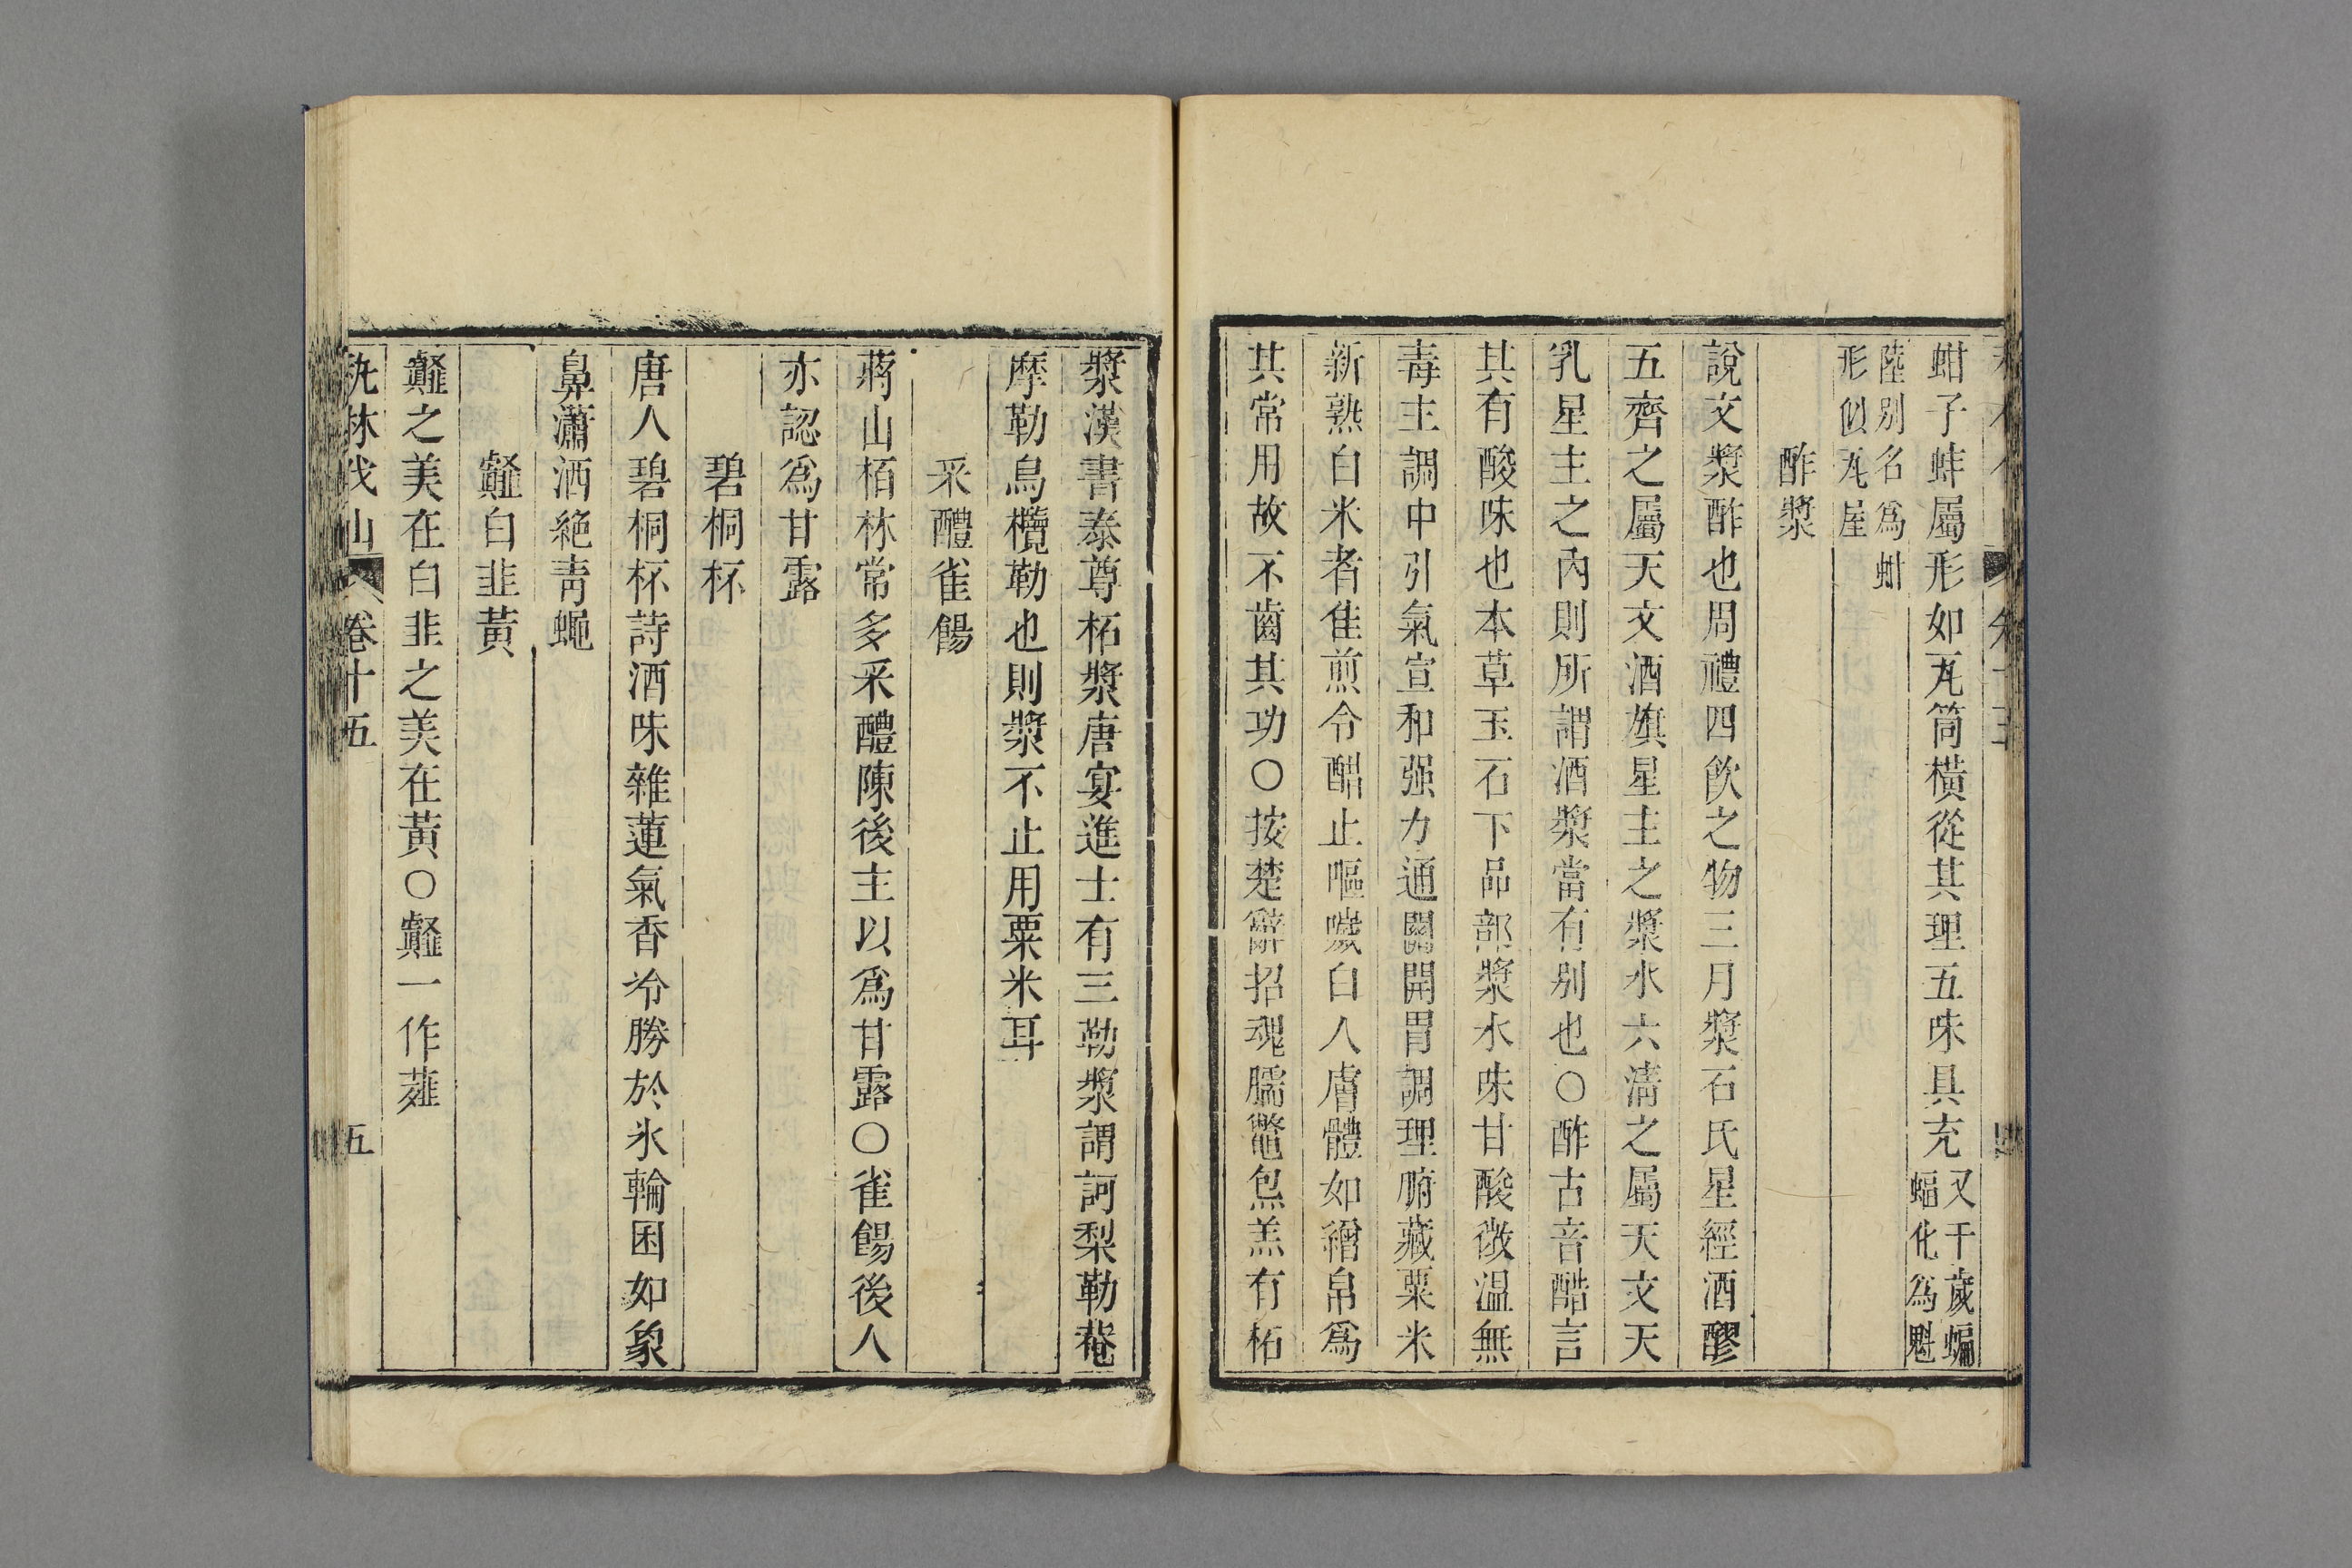 蚶子蚌屬形如瓦筒橫從其理五味具充又千歲蝙蝠化爲魁
陸别名爲蚶形似瓦屋
酢漿
說文漿酢也周禮四飲之物三月漿石氏星經酒醪
五齊之屬天文酒旗星主之漿水六清之屬天文天
乳星主之內則所謂酒漿當有别也○酢古音醋言
其有酸味也本草玉石下品部漿水味甘酸微温無
毒主調中引氣宣和强力通關開胃調理腑藏粟米
新熟白米者佳煎令醋止嘔噦白人膚體如繒帛爲
其常用故不齒其功○按楚辭招魂臑鼈炰羔有柘
漿漢書泰尊柘漿唐宴進士有三勒漿謂訶梨勒菴
摩勒烏欖勒也則漿不止用粟米耳
采醴雀餳
蔣山栢林常多采醴陳後主以爲甘露○雀餳後人
亦認爲甘露
碧桐杯
唐人碧桐杯詩酒味雜蓮氣香冷勝於氷輪囷如象
鼻瀟洒絶靑蠅
虀白韭黃
虀之美在白韭之美在黃○虀一作薤
秇林伐山 卷十五 五